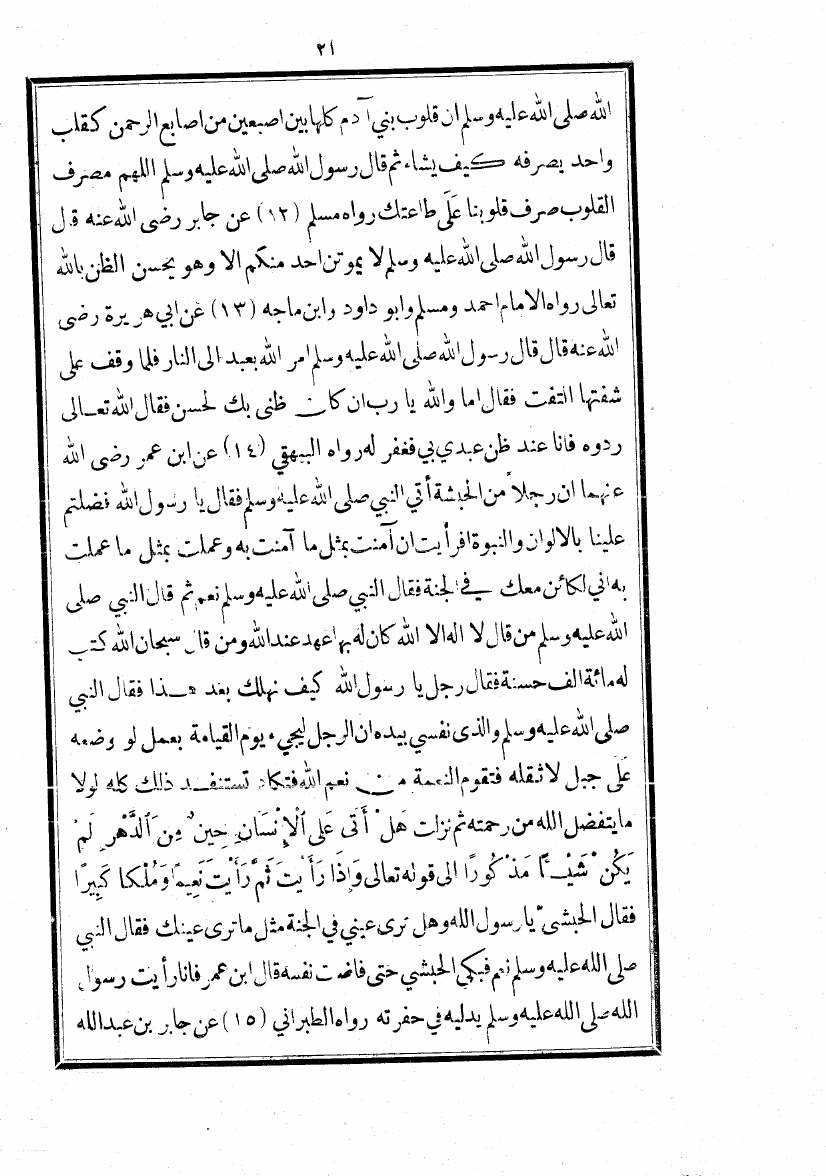 ٢١
الله صلى الله عليه وسلم ان قلوب بني آدم كلها بين اصبعين من اصابع الرحمن كقلب
واحد يصرفه كيف يشاء ثم قال رسول الله صلى الله عليه وسلم اللهم مصرف
القلوب صرف قلوبنا عَلَى طاعتك رواه مسلم (١٢) عن جابر رضى الله عنه قال
قال رسول الله صلى الله عليه وسلم لا يموتن احد منكم الا وهو يحسن الظن بالله
تعالى رواه الامام احمد ومسلم وابو داود وابن ماجه (١٣) عن ابي هريرة رضى
الله عنه قال قال رسول الله صلى الله عليه وسلم امر الله بعبد الى النار فلما وقف على
شفتها التفت فقال اما والله يا رب ان كان ظنى بك لحسن فقال الله تعالى
ردوه فانا عند ظن عبدي بي فغفر له رواه البيهقي (١٤) عن ابن عمر رضى الله
عنهما ان رجلاً من الحبشة أتي النبي صلى الله عليه وسلم فقال يا رسول الله فضلتم
علينا بالالوان والنبوة افرأيت ان آمنت بمثل ما آمنت به وعملت بمثل ما عملت
به اني لكائن معك في الجنة فقال النبي صلى الله عليه وسلم نعم ثم قال النبي صلى
الله عليه وسلم من قال لا اله الا الله كان له بها عهد عند الله ومن قال سبحان الله كتب
له مائة الف حسنة فقال رجل يا رسول الله كيف نهلك بعد هذا فقال النبي
صلى الله عليه وسلم والذى نفسي بيده ان الرجل ليجيء يوم القيامة بعمل لو وضعه
عَلَى جبل لاثقله فتقوم النعمة من نعم الله فتكاد تستنفد ذلك كله لولا
ما يتفضل الله من رحمته ثم نزلت هَلْ أَتَى عَلَى الْإِنْسَانِ حِينٌ مِنَ الدَّهْرِ لَمْ
يَكُنْ شَيْـًٔا مَذْكُورًا الى قوله تعالى وَإِذَا رَأَيْتَ ثَمَّ رَأَيْتَ نَعِيمًا وَمُلْكًا كَبِيرًا
فقال الحبشى يا رسول الله وهل ترى عيني في الجنة مثل ما ترى عينك فقال النبي
صلى الله عليه وسلم نعم فبكى الحبشي حتى فاضت نفسه قال ابن عمر فانا رأيت رسول
الله صلى الله عليه وسلم يدليه في حفرته رواه الطبراني (١٥) عن جابر بن عبدالله